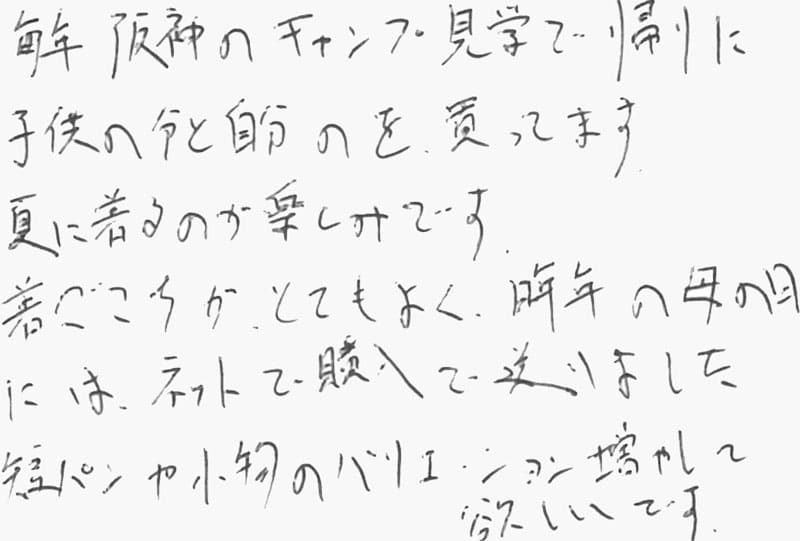 毎年 阪神のキャンプ見学で帰りに
子供の分と自分のを、買ってます
夏に着るのが楽しみです。
着ごこちが、とてもよく、昨年の母の日
には、ネットで購入で送りました
短パンや小物のバリエーション増やして
欲しいです。